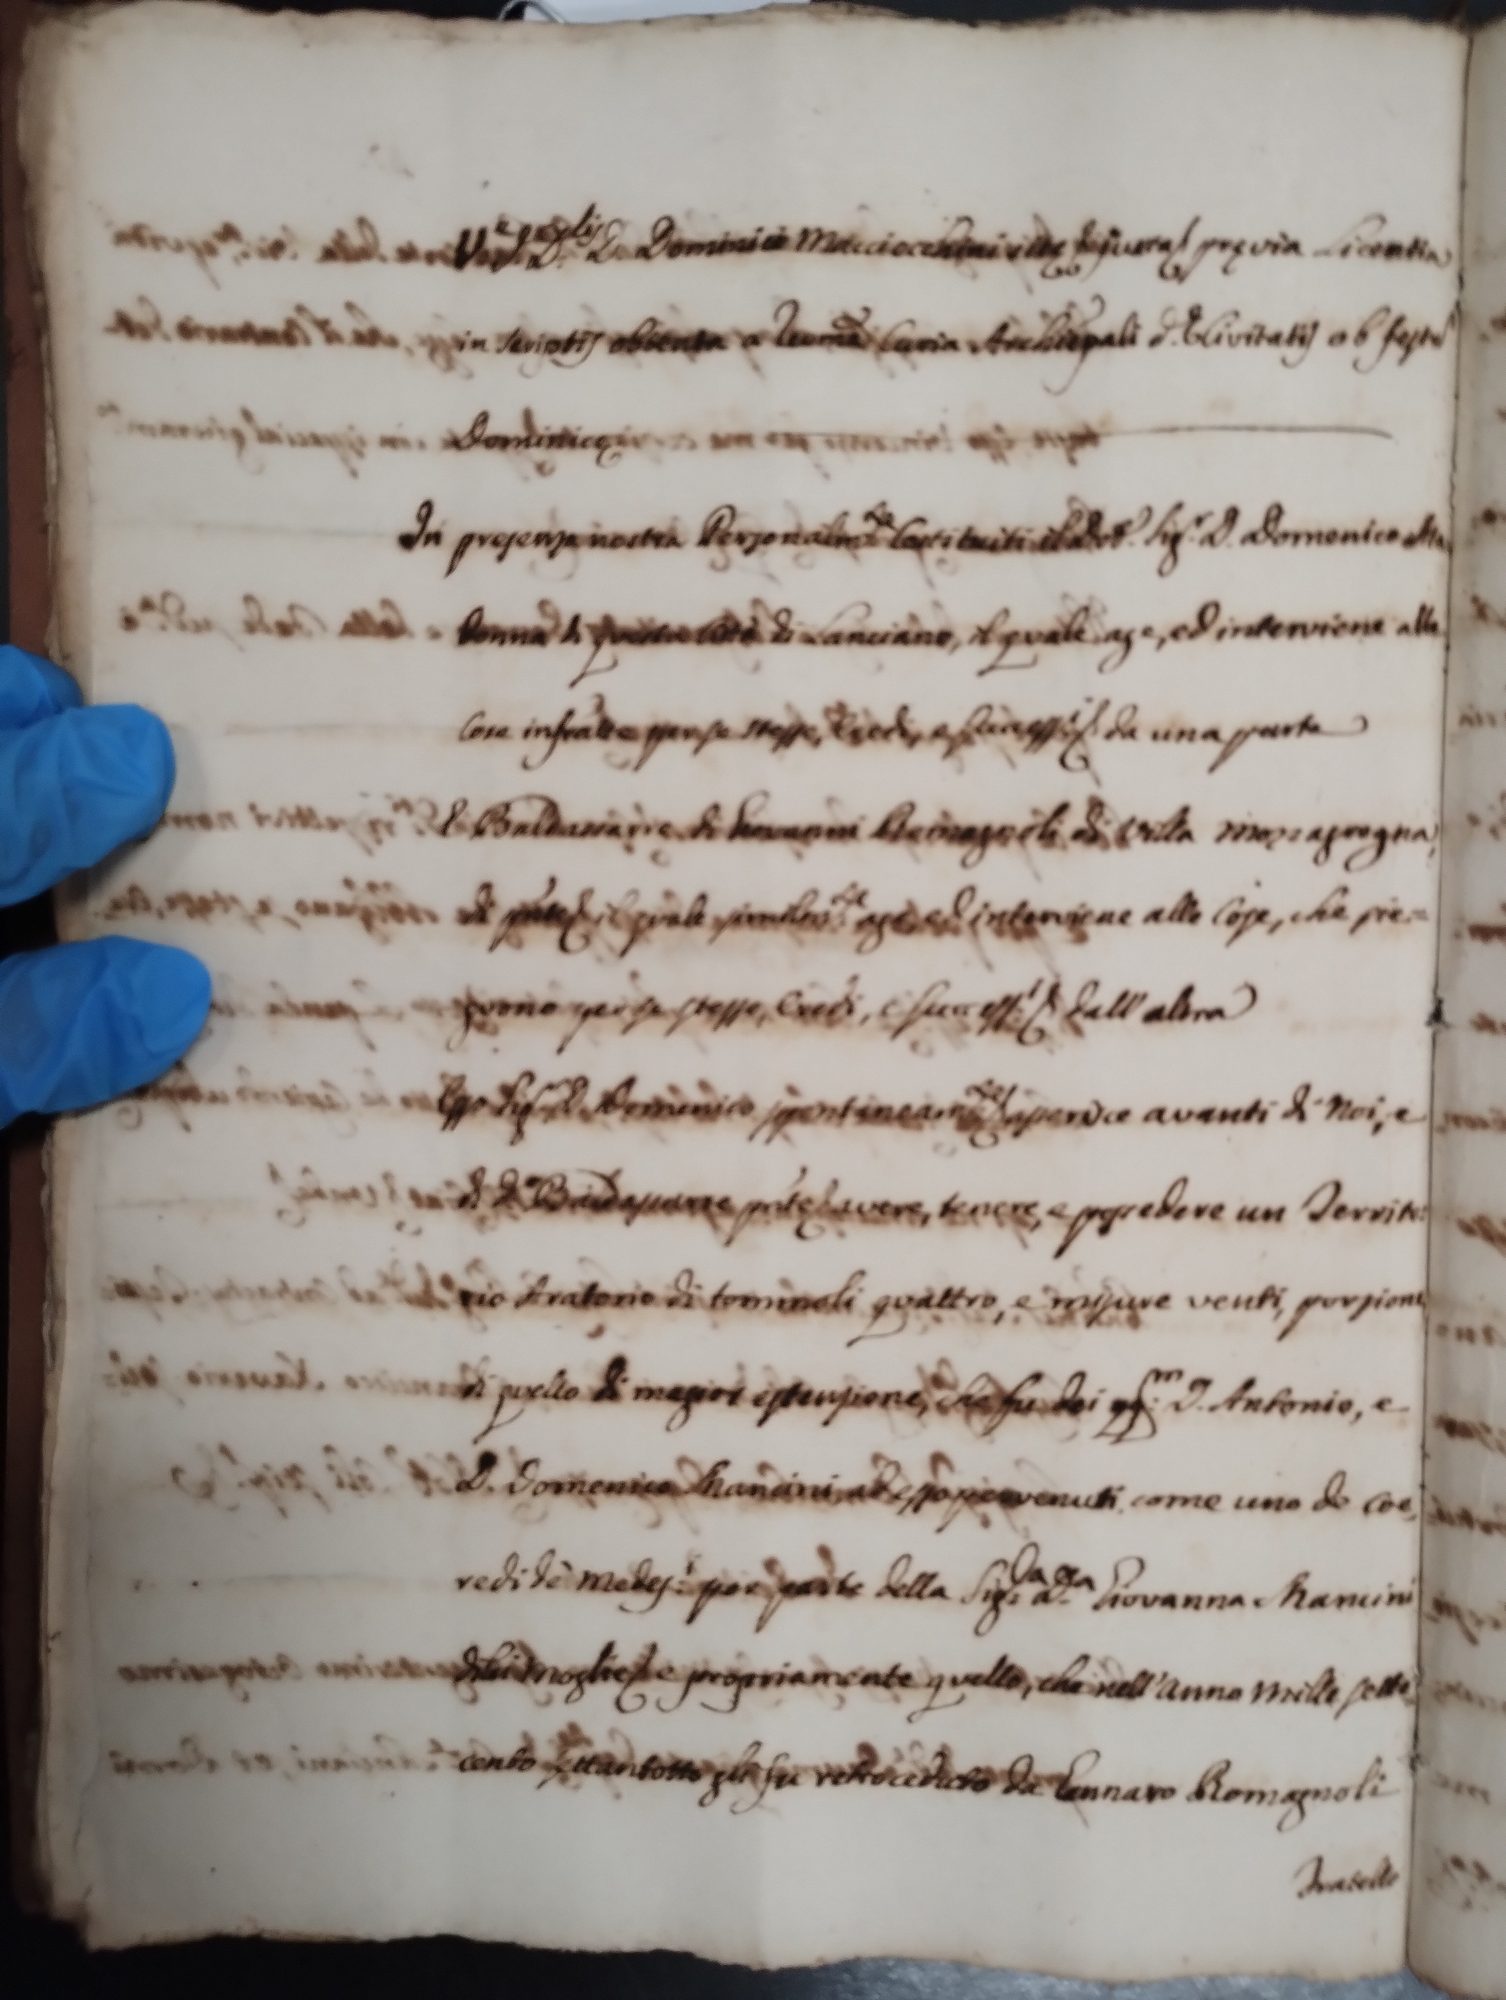 D. Dominici Macciocchini previa Licentia
in scriptis obtenta a Curia Archiepali d.ę Civitatis ob festū
Dominicę
In presenza nostra Personalm.te Costituiti il Dr. Sig.r D. Domenico Ma
donna di questa Città di Lanciano, il quale age, ed interviene alle
Cose infratte per se stesso, Eredi, e Success.i da una parte
E Baldassarre di Giovanni Romagnoli di Villa Mozzagrogna,
di il quale similm.te age, ed interviene alle Cose, che sie=
guono per se stesso, Eredi, e Success.i dall' altra
Esso Sig.r D. Domenico spontineam.te asperisce avanti di Noi, e
di d.o Baldassarre avere, tenere, e possedere un Territo:
rio Aratorio di tommoli quattro, e misure venti, porzione
di quello di magior estenzione, che fu dei qq.m D. Antonio, e
D. Domenico Mancini ad esso pervenuti come uno de Coe,
redi dè Medes.i per parte della Sig.ra D.a Giovanna Mancini
di lui Moglie e propriamente quello, che nell' Anno Mille sette
cento settantotto gli fu retroceduto da Gennaro Romagnoli
Fratello